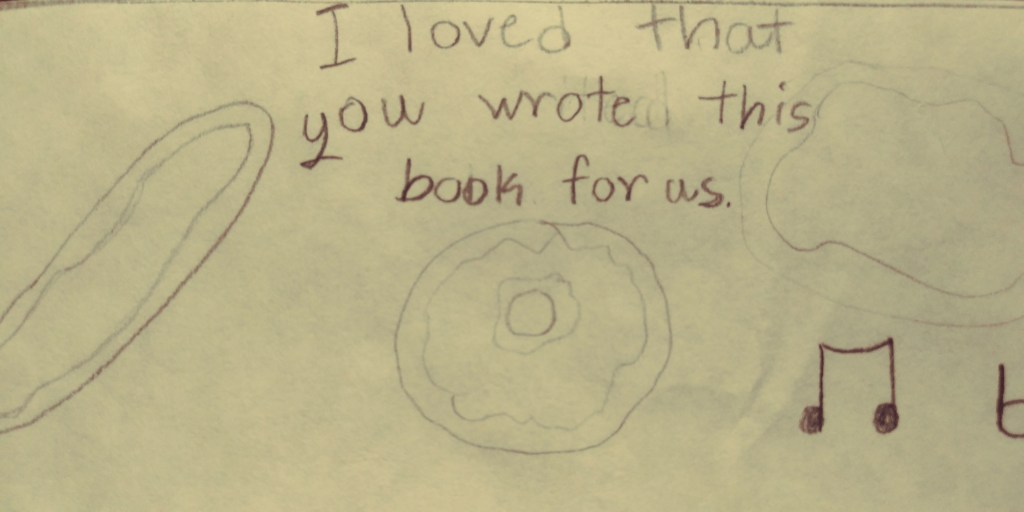 I loved that
you wrote this
book for us.